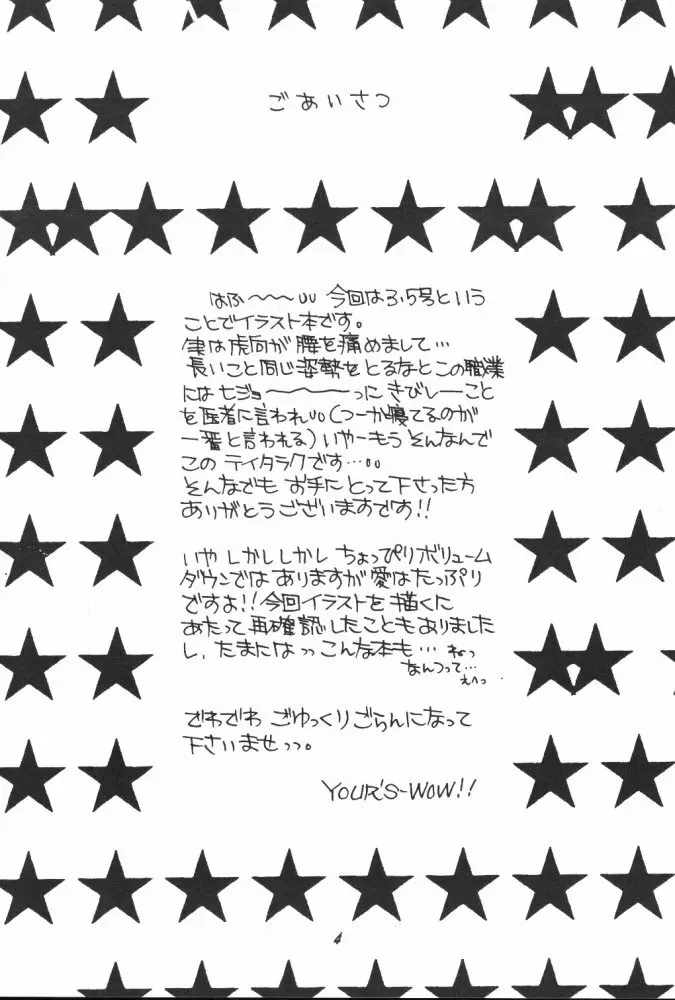 ごあいさつ
はふ〜〜〜いい 今回は3.5号という
ことでイラスト本です。
実は虎向が腰を痛めまして…
長いこと同じ姿勢をとるなとこの職業
には七ジョ〜〜〜〜っに きびしーこと
を医者に言われ(つーか寝てるのが
一番と言われる)いやーもう そんなんで
この テイタラクです…
そんなでも お手にとって下さった方
ありがとうございますです!!
いや しかししかし ちょっぴりボリューム
ダウンでは ありますが愛はたっぷり
ですよ!!今回イラストを描くに
あたって再確認したこともありました
し、たまにはっっこんな本も… ねっ
なんつって…
えへっ
でわでわ ごゆっくりごらんになって
下さいませっっ。
YOUR'S-WOW!!
4